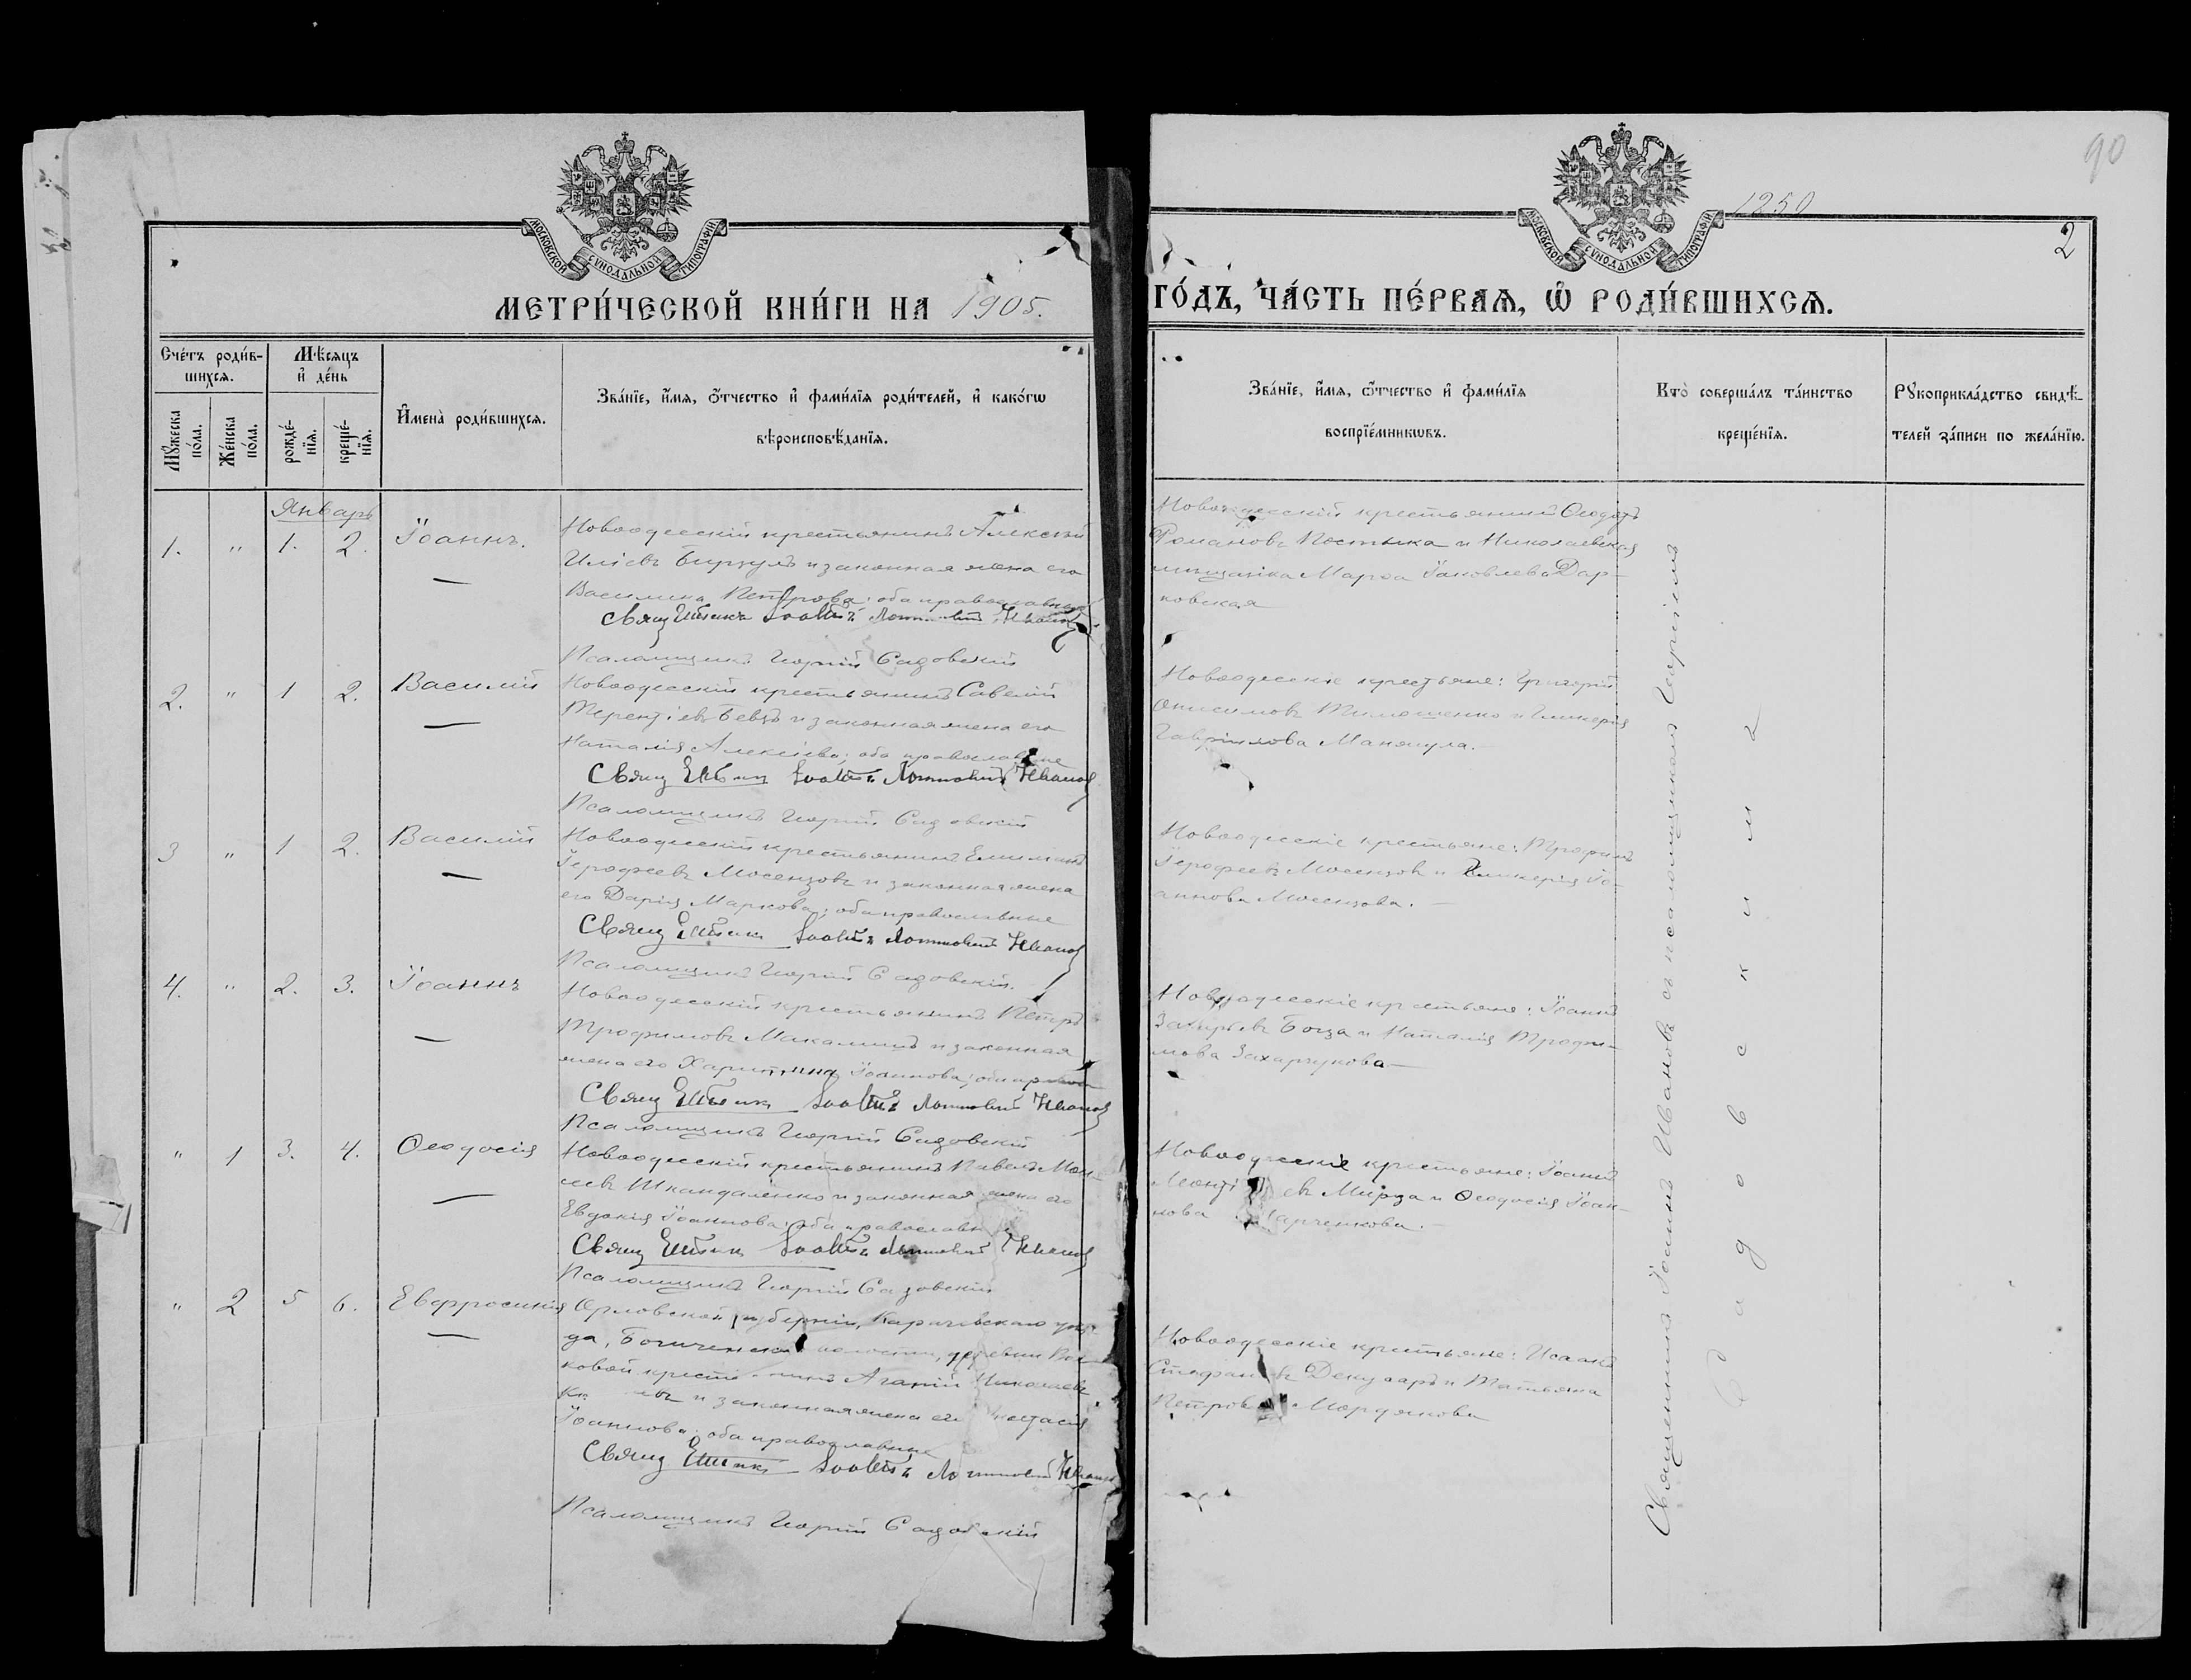 90
1250
2
МОСКОВСКОЙ СѴНОДАЛЬНОЙ ТИПОГРАФІИ
МОСКОВСКОЙ СѴНОДАЛЬНОЙ ТИПОГРАФІИ
МЕТРИ́ЧЕСКОЙ КНИ́ГИ НА 1905. ГО́ДЪ, ЧА́СТЬ ПЕ́РВАѦ, Ѿ РОДИ́ВШИХСѦ.
Сче́тъ роди́в-
шихсѧ.
Мѣ́сѧцъ
и҆ де́нь
Мꙋ́жеска по́ла.
Же́нска по́ла.
рожде́-
нїѧ.
креще́-
нїѧ.
И҆мена̀ роди́вшихсѧ.
Зва́нїе, и҆́мѧ, ѻ҆́тчество и҆ фами́лїѧ роди́телей, и҆ како́гѡ
вѣроисповѣ́данїѧ.
Зва́нїе, и҆́мѧ, ѻ҆́тчество и҆ фами́лїѧ
воспрїе́мникѡвъ.
Кто̀ соверша́лъ та́инство
креще́нїѧ.
Рꙋкоприкла́дство свидѣ́-
телей за́писи по жела́нїю.
Январь
1. " 1. 2. Іоаннъ.
Новоодесскій крестьянинъ Алексѣй
Иліевъ Бурдулъ и законная жена его
Василиса Петрова; оба православные
Священникъ Іоаннъ Иванов
Псаломщикъ Георгій Садовскій
Новоодесскій крестьянинъ Ѳеодотъ
Романовъ Постыка и Николаевская
мѣщанка Марѳа Іаковлева Дар-
ковская
2. " 1 2. Василій
Новоодесскій крестьянинъ Савелій
Терентіевъ Бевзъ и законная жена его
Наталія Алексіева; оба православные
Священникъ Іоаннъ Иванов
Псаломщикъ Георгій Садовскій
Новоодесскіе крестьяне: Григорій
Онисимовъ Тимошенко и Гликерія
Гавріилова Маняцула.
3 " 1 2. Василій
Новоодесскій крестьянинъ
Іерофеевъ Мосенцовъ и законная жена
его Дарія Маркова; оба православные
Священникъ Іоаннъ Иванов
Псаломщикъ Георгій Садовскій.
Новоодесскіе крестьяне: Трофимъ
Іерофеевъ Мосенцовъ и Гликерія Іо-
аннова Мосенцова.
4. " 2. 3. Іоаннъ
Новоодесскій крестьянинъ Петръ
Трофимовъ Макаминъ и законная
жена его Харитина Іоаннова; оба право
Священникъ Іоаннъ Иванов
Псаломщикъ Георгій Садовскій
Новоодесскіе крестьяне: Іоаннъ
Захаріевъ Богза и Наталія Трофи-
мова Захарчукова
" 1 3. 4. Ѳеодосія
Новоодесскій крестьянинъ Павелъ Мои-
сеевъ Шкандаленко и законная жена его
Евдокія Іоаннова; оба православные
Священникъ Іоаннъ Иванов
Псаломщикъ Георгій Садовскій
Новоодесскіе крестьяне: Іоаннъ
Леонтіевъ Мирза и Ѳеодосія Іоан-
нова Харченкова.
" 2 5 6. Евфросинія
Орловской губерніи, Карачевскаго уѣз-
да, волости, деревни
ковой крестьянинъ Агапій Николаевъ
и законная жена его Анастасія
Іоаннова; оба православные
Священникъ Іоаннъ Иванов
Псаломщикъ Георгій Садовскій
Новоодесскіе крестьяне: Исаакъ
Стефановъ Декусаръ и Татьяна
Петрова Мордякова
Священникъ Іоаннъ Ивановъ съ псаломщикомъ Георгіемъ
Садовскимъ